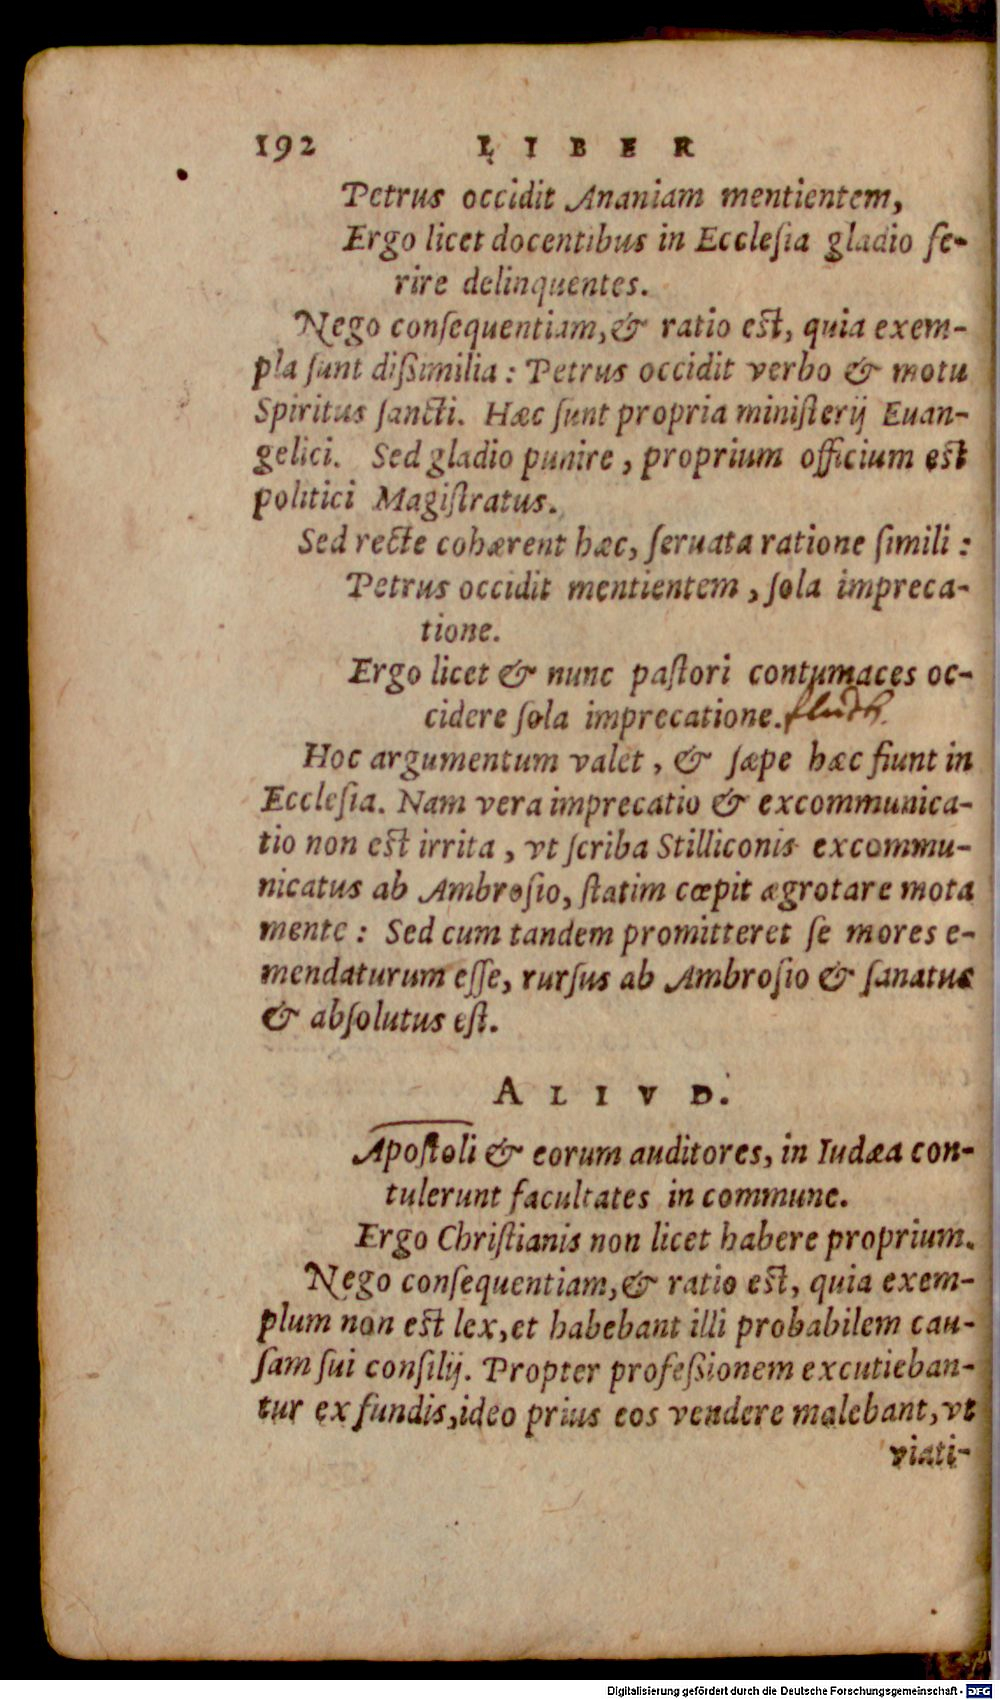 192 LIBER
Petrus occidit Ananiam mentientem,
Ergo licet docentibus in Ecclesia gladio fe-
rire delinquentes.
Nego conſequentiam, & ratio eſt, quia exem-
pla ſunt diſsimilia: Petrus occidit verbo & motu
Spiritus ſancti. Hæc ſunt propria miniſterij Euan-
gelici. Sed gladio punire, proprium officium eſt
politici Magiſtratus.
Sed recte cohærent hæc, ſeruata ratione ſimili:
Petrus occidit mentientem, ſola impreca-
tione.
Ergo licet & nunc paſtori contumaces oc-
cidere ſola imprecatione.
Hoc argumentum valet, & ſæpe hæc fiunt in
Eccleſia. Nam vera imprecatio & excommunica-
tio non eſt irrita, vt ſcriba Stilliconis excommu-
nicatus ab Ambroſio, ſtatim cœpit ægrotare mota
mente: Sed cum tandem promitteret ſe mores e-
mendaturum eſſe, rurſus ab Ambroſio & ſanatus
& abſolutus eſt.
ALIVD.
Apoſtoli & eorum auditores, in Iudæa con-
tulerunt facultates in commune.
Ergo Chriſtianis non licet habere proprium.
Nego conſequentiam, & ratio eſt, quia exem-
plum non eſt lex, et habebant illi probabilem cau-
ſam ſui conſilij. Propter profeſsionem excutieban-
tur ex fundis, ideo prius eos vendere malebant, vt
viati-
Digitalisierung gefördert durch die Deutsche Forschungsgemeinschaft - DFG